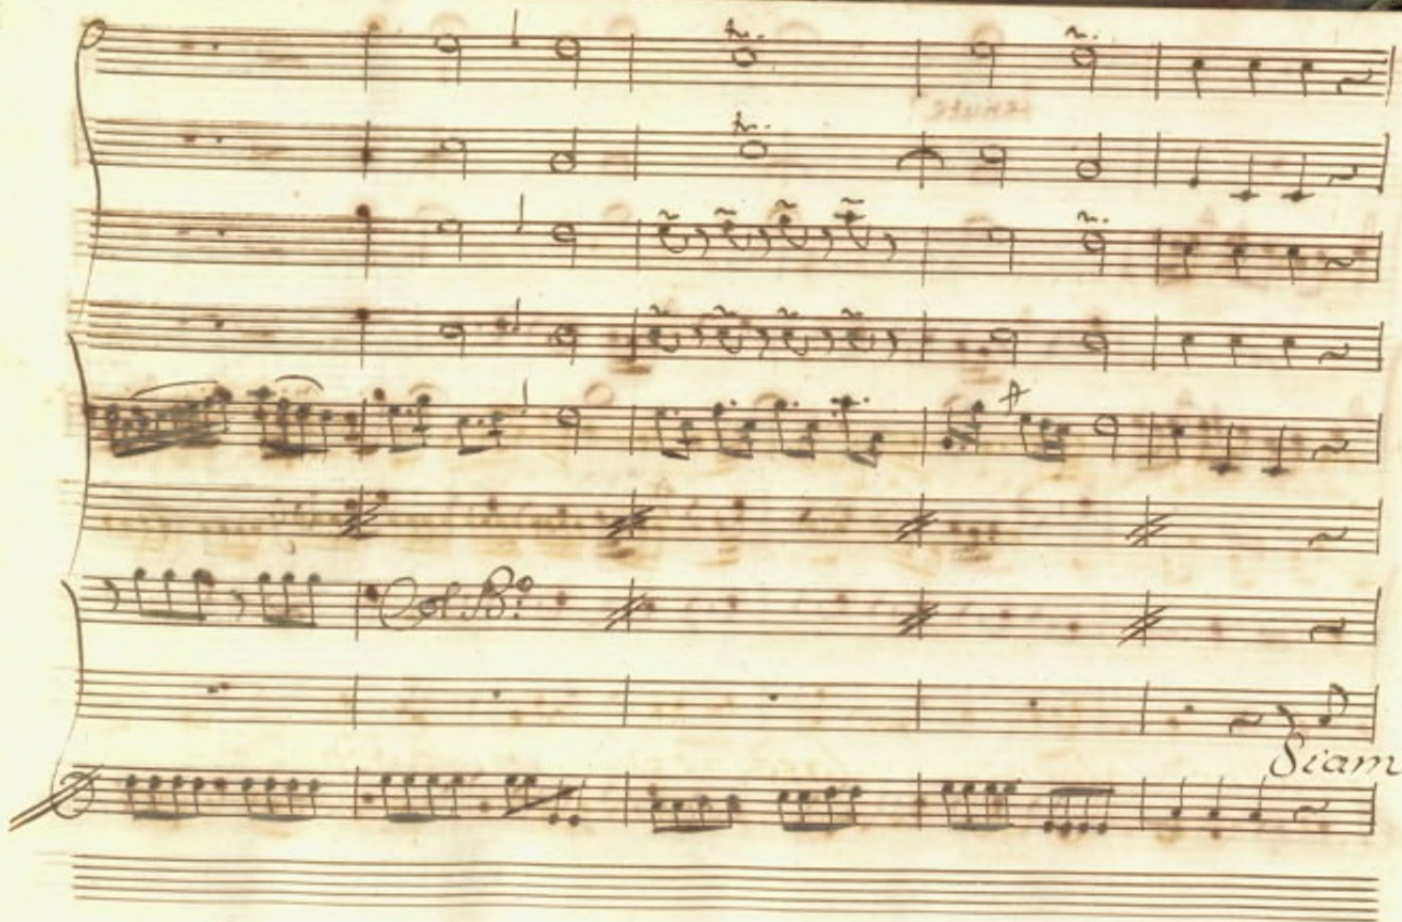 Col B.º
Siam